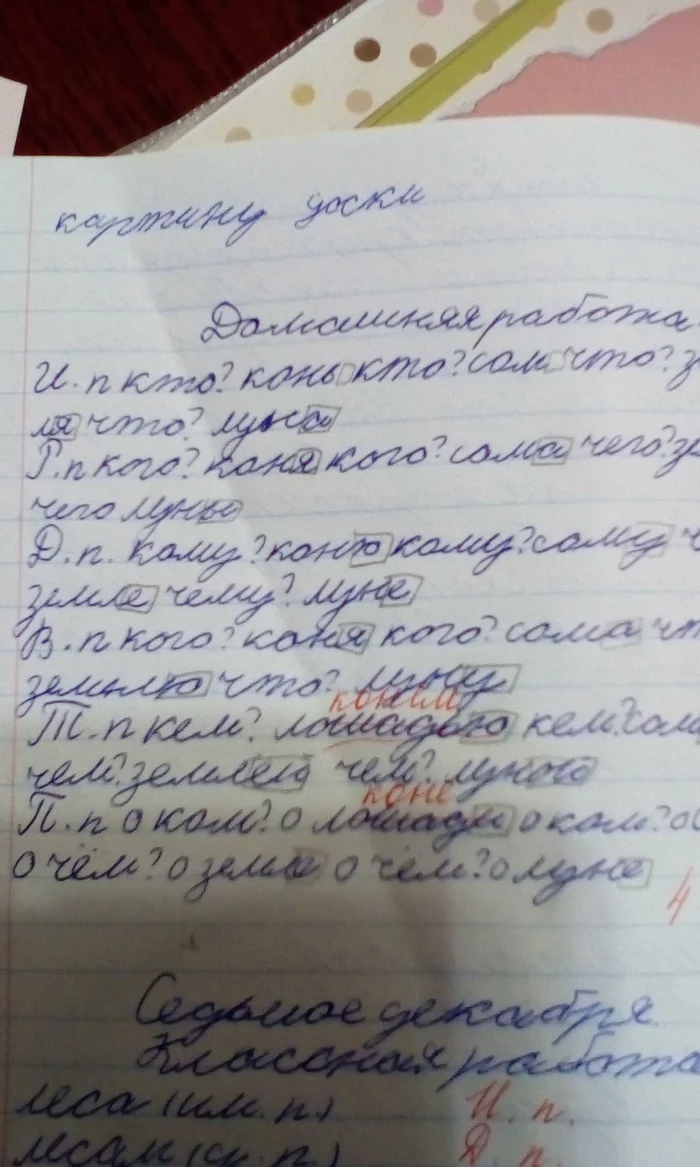 картину доски
Домашняя работа
И.п кто? конь кто? сом что? зем
ля что? луна
Р.п кого? коня кого? сома чего? зе
чего луны
Д.п. кому? коню кому? сому ч
земле чему? луне
В.п кого? коня кого? сома чт
землю что? луну
конём
Т.п кем? лошадью кем? сом
чем? землёю чем? луною
коне
П.п о ком? о лошади о ком? о с
о чём? о земле о чём? о луне
4
Седьмое декабря.
Классная работа
леса (им. п.) И. п.
лесам Д. п.